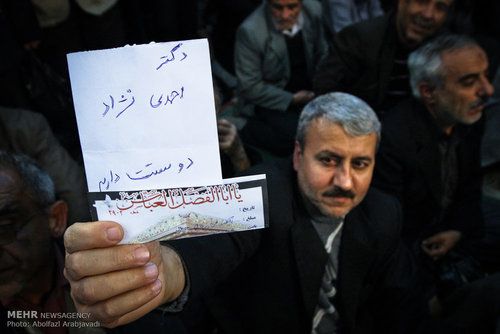 دکتر
احمدی نژاد
دوستت داریم
یا اباالفضل العباس
تاریخ:
MEHR NEWSAGENCY
Photo: Abolfazl Arabjavadi